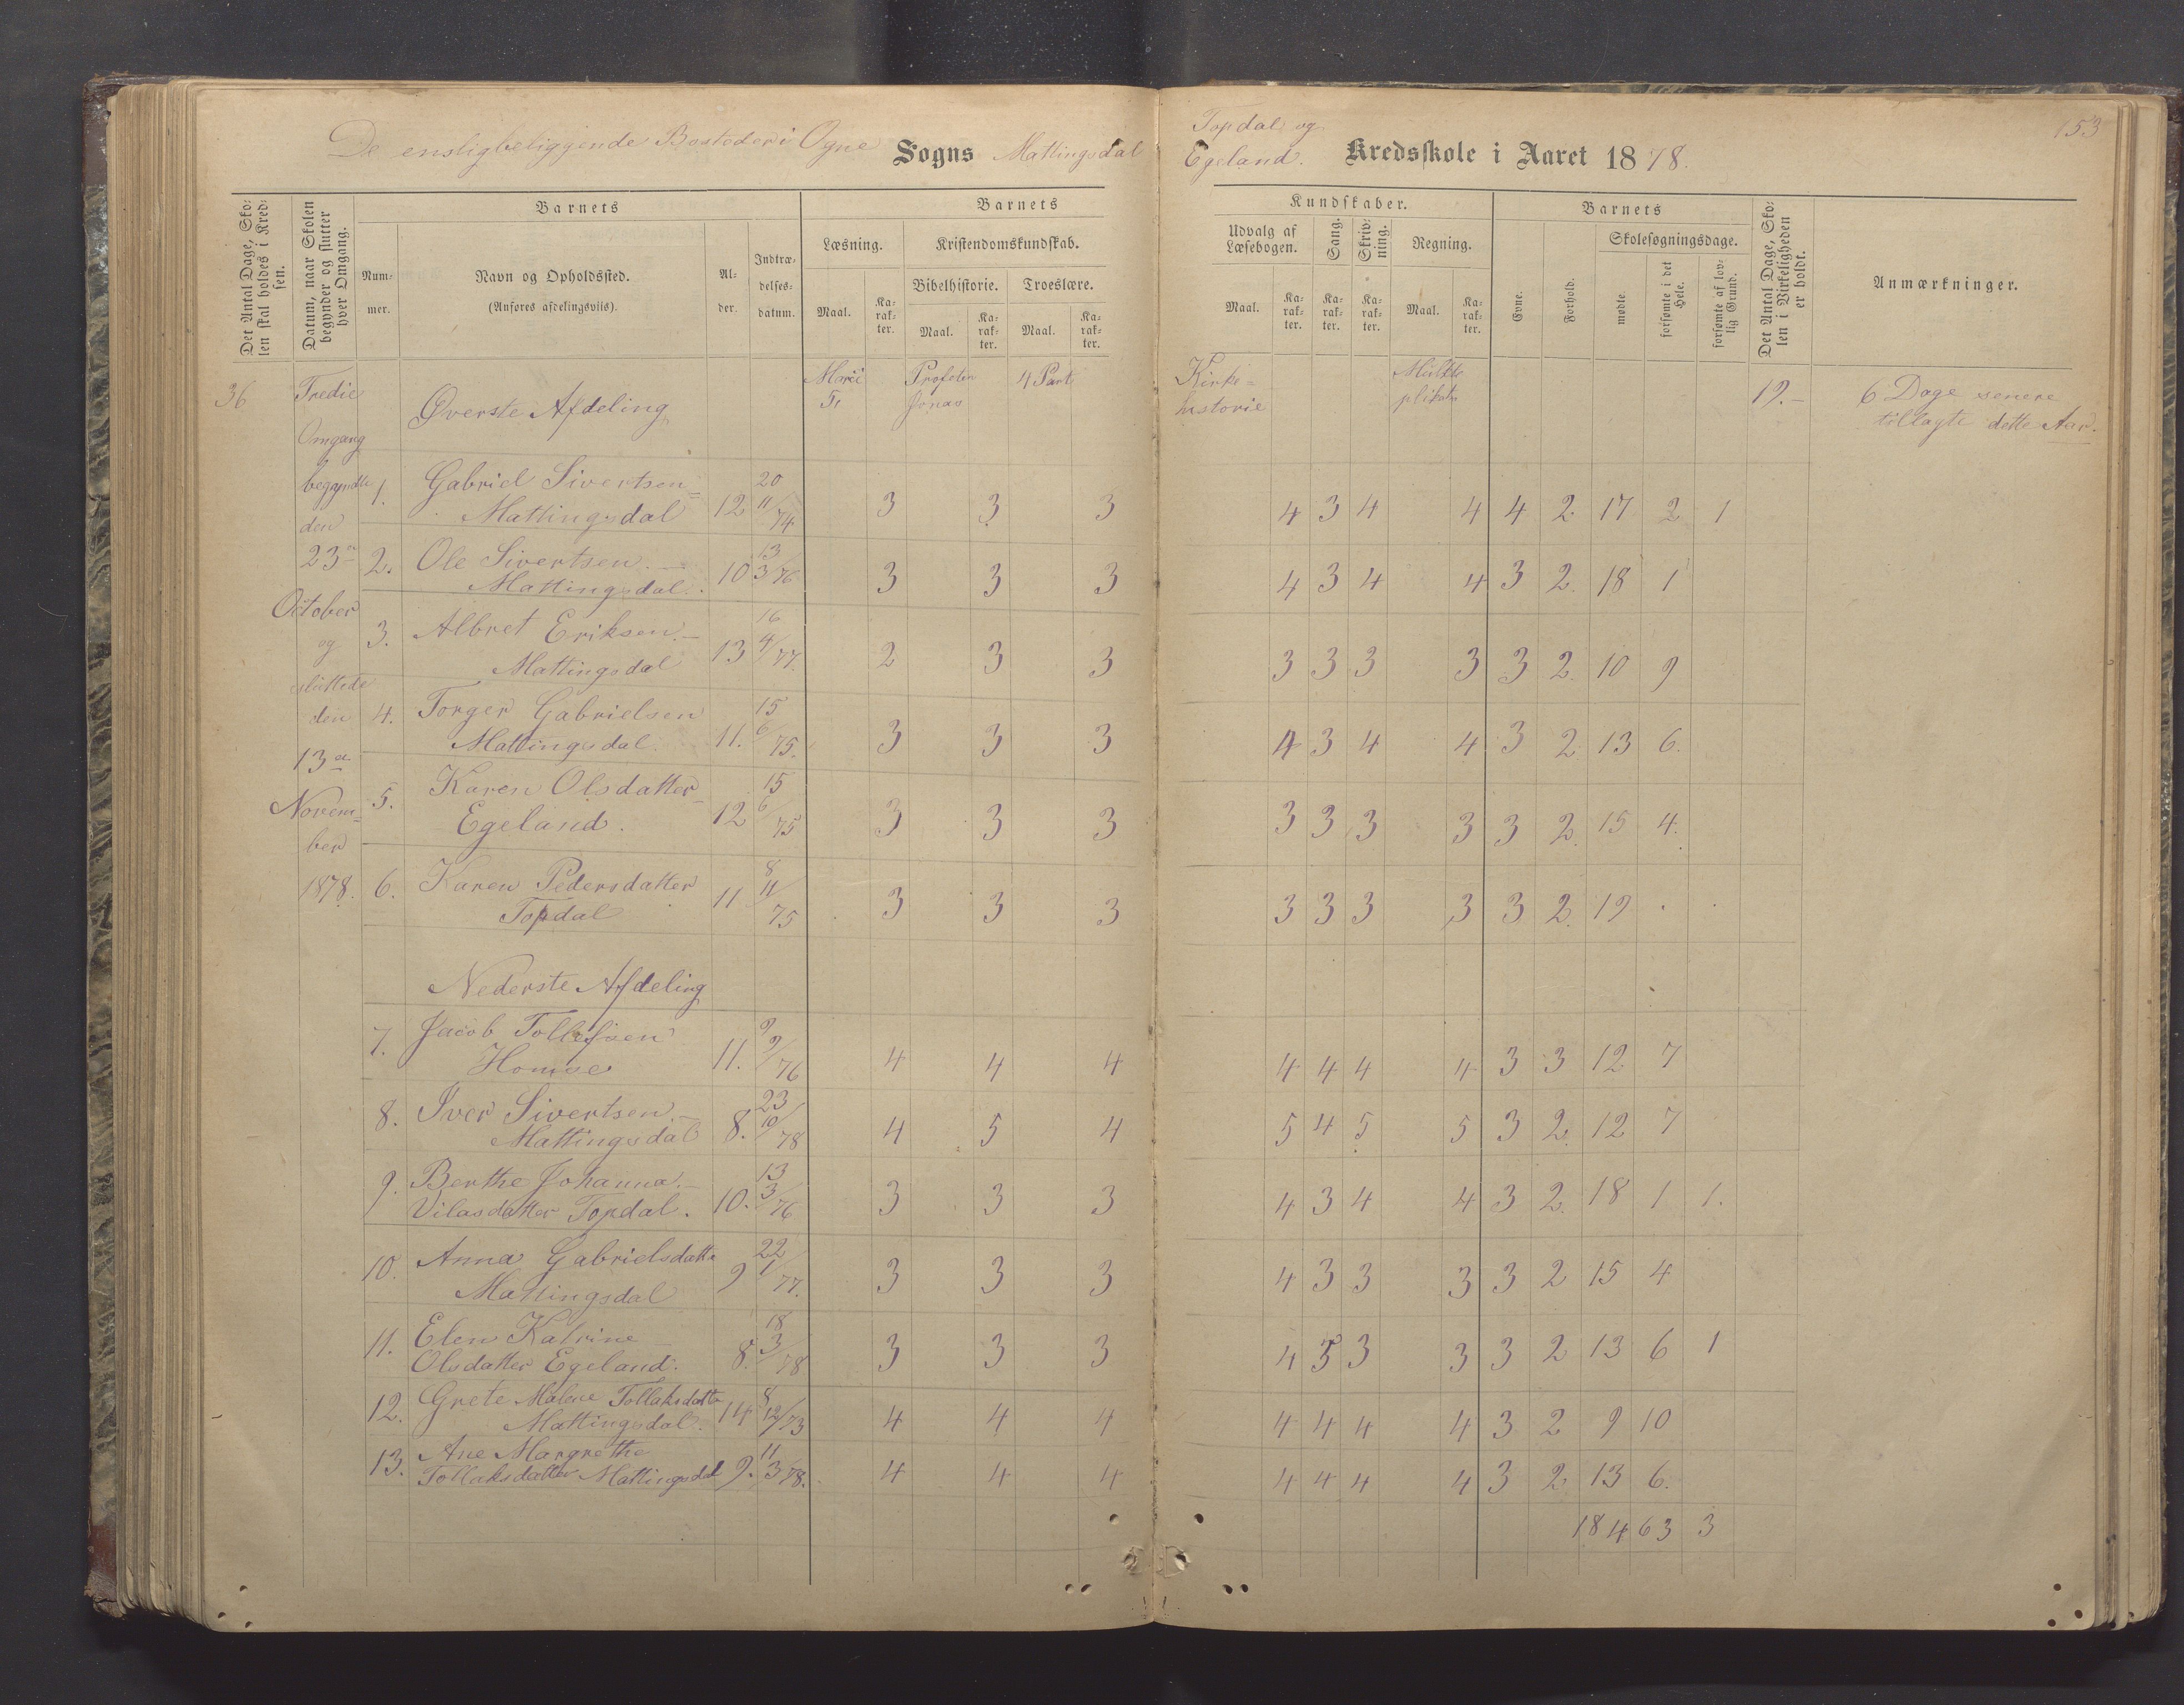 De ensligbeliggende Bosteder i Ogne Sogns Mattingsdal Topdal og
Egeland. Kredsskole i Aaret 1878.
153
Det Antal Dage, Sko-
len skal holdes i Kred-
sen.
Datum, naar Skolen
begynder og slutter
hver Omgang.
Barnets
Num-
mer.
Navn og Opholdssted.
(Anføres afdelingsviis).
Al-
der.
Indtræ-
delses-
datum.
Barnets
Læsning.
Maal.
Ka-
rak-
ter.
Kristendomskundskab.
Bibelhistorie.
Maal.
Ka-
rak-
ter.
Troeslære.
Maal.
Ka-
rak-
ter.
Kundskaber.
Udvalg af
Læsebogen.
Maal.
Ka-
rak-
ter.
Sang.
Ka-
rak-
ter.
Skriv-
ning.
Ka-
rak-
ter.
Regning.
Maal.
Ka-
rak-
ter.
Barnets
Evne.
Forhold.
Skolesøgningsdage.
mødte
forsømte i det
Hele.
forsømte af lov-
lig Grund.
Det Antal Dage, Sko-
len i Virkeligheden
er holdt.
Anmærkninger.
36
Tredie
Omgang
begyndte
den
23de
October
og
sluttede
den
13de
Novem-
ber
1878.
Øverste Afdeling
Profeten
Jonas
4 Part
Kirke-
historie
Multi
plikation
19.-
6 Dage senere
tillagte dette Aar.
1. Gabriel Sivertsen
Mattingsdal 12 20 11/74 3 3 3 4 3 4 4 4 2 17 2 1
2. Ole Sivertsen.
Mattingsdal. 10 13 3/76 3 3 3 4 3 4 4 3 2. 18 1
3. Albret Eriksen.
Mattingsdal 13 16 4/77. 2 3 3 3 3 3 3 3 2. 10 9
4. Torger Gabrielsen
Mattingsdal. 11. 15 6/75. 3 3 3 4 3 4 4 3 2 13 6.
5. Karen Olsdatter
Egeland. 12 15 6/75 3 3 3 3 3 3 3 3 2. 15 4.
6. Karen Pedersdatter
Topdal 11 8 11/75 3 3 3 3 3 3 3 3 2. 19 . .
Nederste Afdeling
7. Jacob Tollefsen
Homse 11. 9 9/76 4 4 4 4 4 4 4 3 3 12 7
8. Iver Sivertsen.
Mattingsdal 8. 23 10/78 4 5 4 5 4 5 5 3 2. 12 7
9. Berthe Johanna.
Vilasdatter Topdal. 10. 13 3/76 3 3 3 4 3 4 4 3 2. 18 1 1.
10. Anna Gabrielsdatter
Mattingsdal 9 22 1/77. 3 3 3 4 3 3 3 3 2 15 4
11. Elen Katrine
Olsdatter Egeland. 8. 18 3/78 3 3 3 4 3 3 3 3 2 13 6 1
12. Grete Malene Tollaksdatter
Mattingsdal. 14 8 12/73 4 4 4 4 4 4 4 3 2 9 10
13. Ane Margrethe
Tollaksdatter Mattingsdal 9. 11 3/78. 4 4 4 4 4 4 4 3 2 13 6.
184 63 3